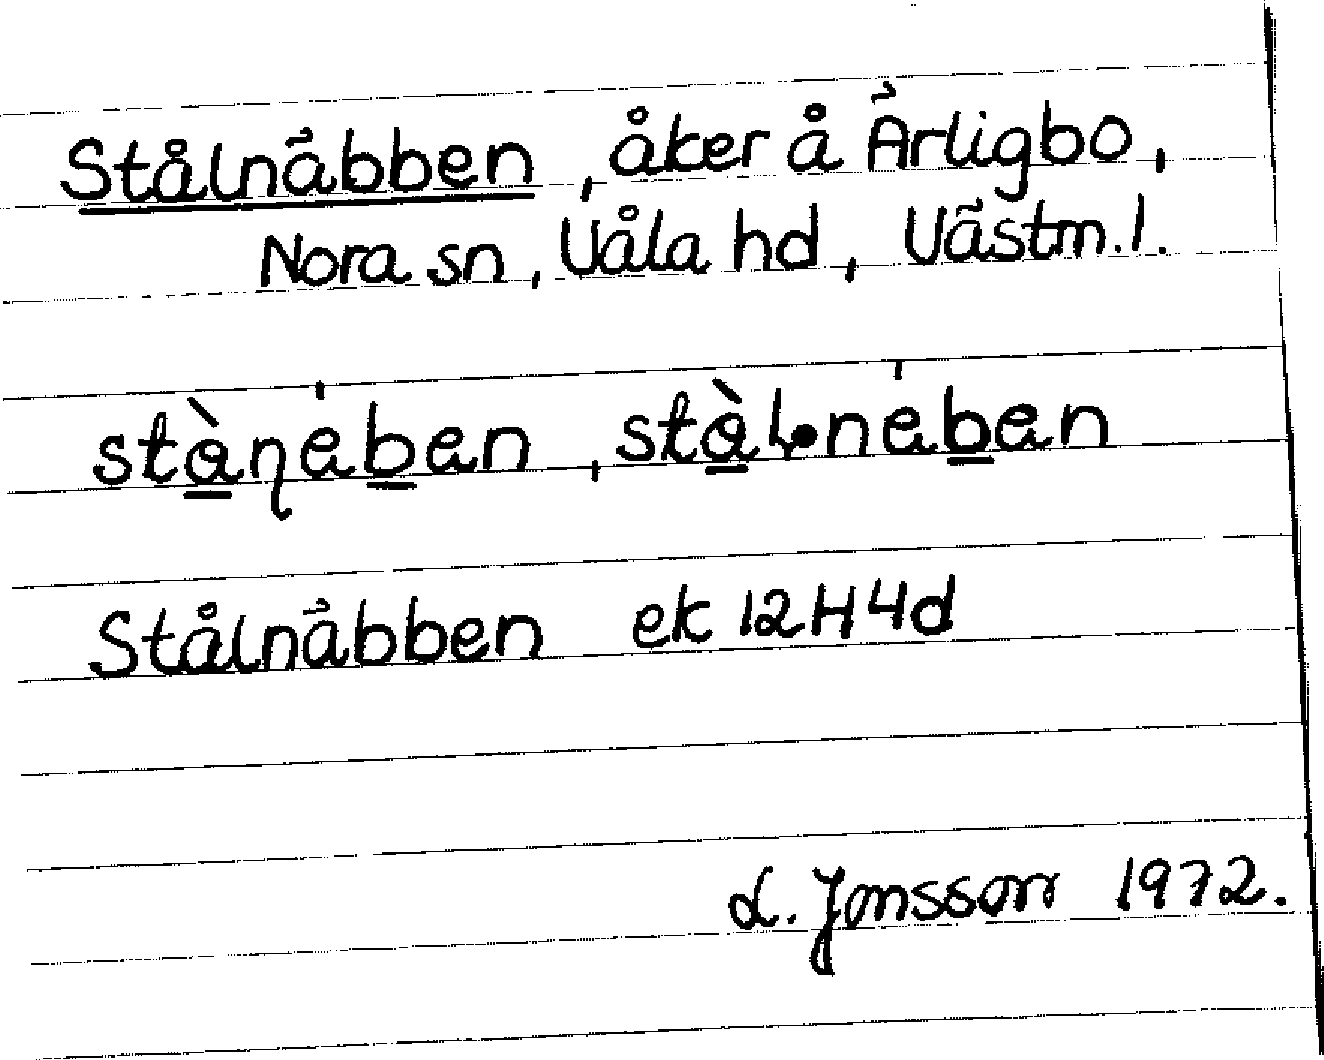 Stålnäbben, åker å Ärligbo,
Nora sn, Våla hd, Västm. l.
stàṇe̍ben, stàl̥·ne̍ben
Stålnäbben ek 12H4d
L. Jonsson 1972.